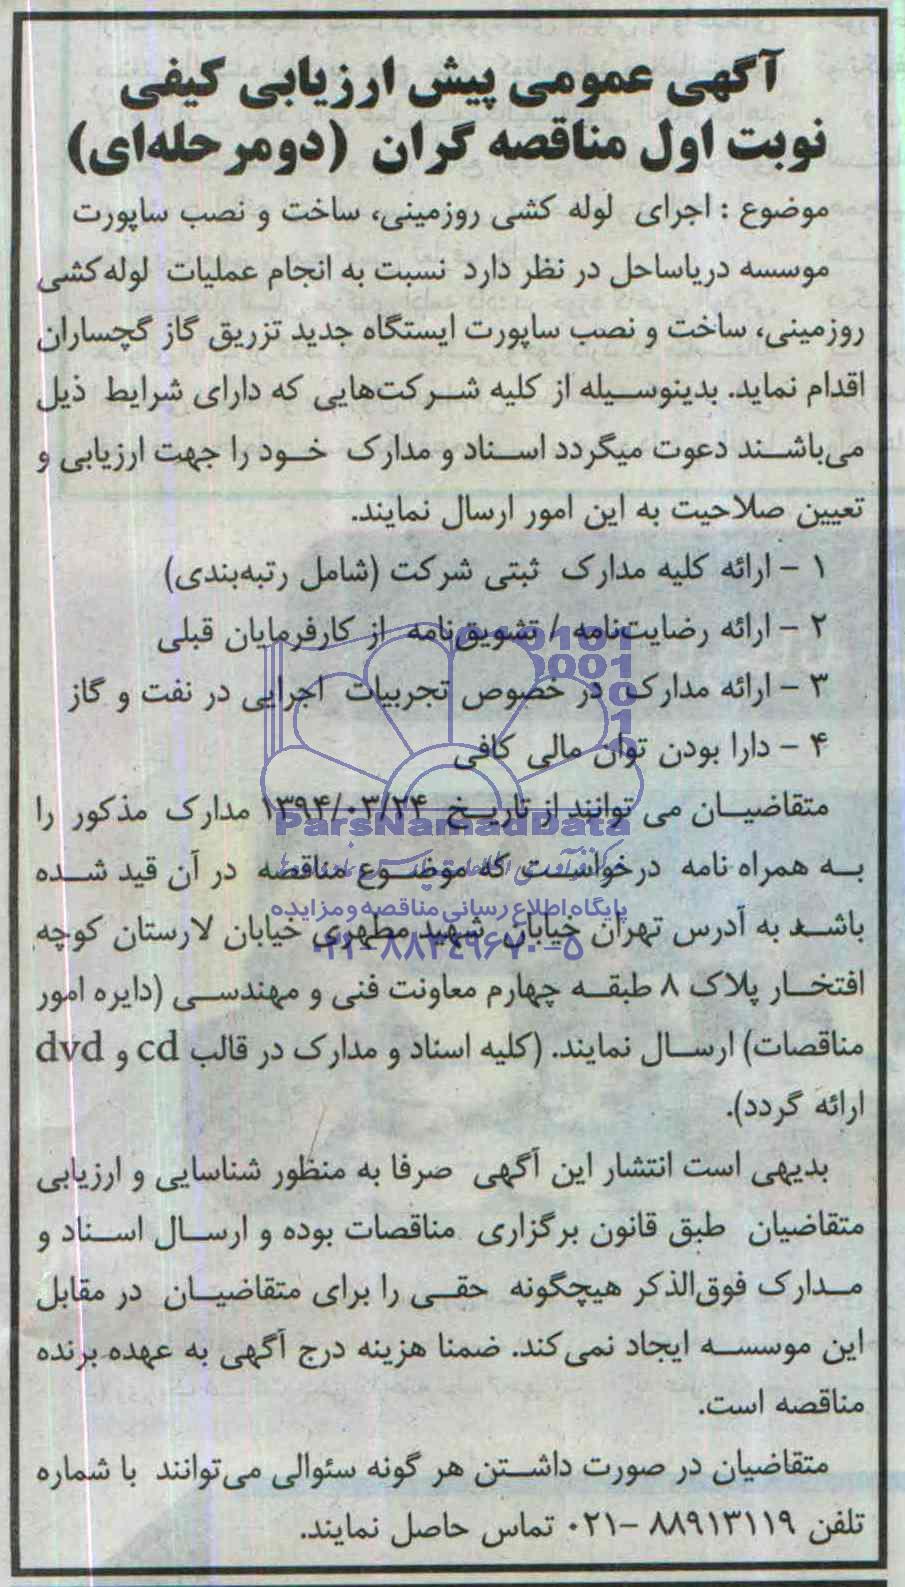 آگهی عمومی پیش ارزیابی کیفی
نوبت اول مناقصه گران (دومرحله‌ای)
موضوع : اجرای لوله کشی روزمینی، ساخت و نصب ساپورت
موسسه دریاساحل در نظر دارد نسبت به انجام عملیات لوله‌کشی
روزمینی، ساخت و نصب ساپورت ایستگاه جدید تزریق گاز گچساران
اقدام نماید. بدینوسیله از کلیه شرکت‌هایی که دارای شرایط ذیل
می‌باشند دعوت میگردد اسناد و مدارک خود را جهت ارزیابی و
تعیین صلاحیت به این امور ارسال نمایند.
۱ - ارائه کلیه مدارک ثبتی شرکت (شامل رتبه‌بندی)
۲ - ارائه رضایت‌نامه / تشویق‌نامه از کارفرمایان قبلی
۳ - ارائه مدارک در خصوص تجربیات اجرایی در نفت و گاز
۴ - دارا بودن توان مالی کافی
متقاضیان می توانند از تاریخ ۱۳۹۴/۰۳/۲۴ مدارک مذکور را
ParsNamadData
به همراه نامه درخواست که موضوع مناقصه در آن قید شده
پایگاه اطلاع رسانی مناقصه و مزایده
باشد به آدرس تهران خیابان شهید مطهری خیابان لارستان کوچه
۰۲۱-۸۸۳۴۹۶۷۰-۵
افتخار پلاک ۸ طبقه چهارم معاونت فنی و مهندسی (دایره امور
مناقصات) ارسال نمایند. (کلیه اسناد و مدارک در قالب cd و dvd
ارائه گردد).
بدیهی است انتشار این آگهی صرفا به منظور شناسایی و ارزیابی
متقاضیان طبق قانون برگزاری مناقصات بوده و ارسال اسناد و
مدارک فوق‌الذکر هیچگونه حقی را برای متقاضیان در مقابل
این موسسه ایجاد نمی‌کند. ضمنا هزینه درج آگهی به عهده برنده
مناقصه است.
متقاضیان در صورت داشتن هر گونه سئوالی می‌توانند با شماره
تلفن ۸۸۹۱۳۱۱۹ -۰۲۱ تماس حاصل نمایند.